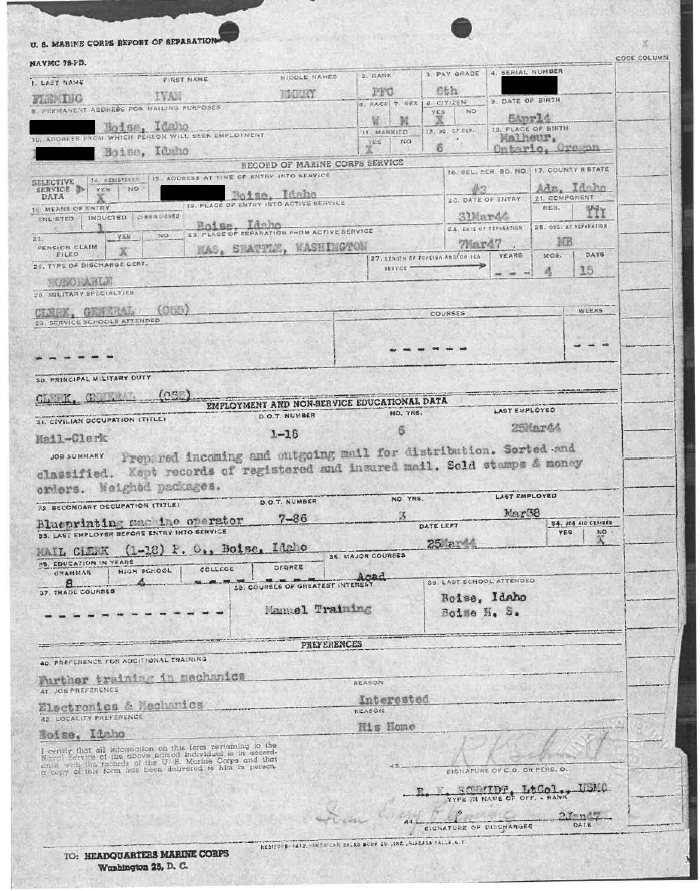 U. S. MARINE CORPS REPORT OF SEPARATION
NAVMC 78-PD.
CODE COLUMN
1. LAST NAME FIRST NAME MIDDLE NAMES 2. RANK 3. PAY GRADE 4. SERIAL NUMBER
FLEMING IVAN EMERY PFC 6th
5. PERMANENT ADDRESS FOR MAILING PURPOSES 6. RACE 7. SEX 8. CITIZEN YES NO 9. DATE OF BIRTH
Boise, Idaho W M X 5Apr14
10. ADDRESS FROM WHICH PERSON WILL SEEK EMPLOYMENT 11. MARRIED YES NO 12. NO. OF DEP. 13. PLACE OF BIRTH
Boise, Idaho X 6 Malheur, Ontario, Oregon
RECORD OF MARINE CORPS SERVICE
SELECTIVE SERVICE DATA 14. REGISTERED YES NO 15. ADDRESS AT TIME OF ENTRY INTO SERVICE 16. SEL. SER. BD. NO. 17. COUNTY & STATE
X Boise, Idaho #2 Ada, Idaho
18. MEANS OF ENTRY 19. PLACE OF ENTRY INTO ACTIVE SERVICE 20. DATE OF ENTRY 21. COMPONENT
ENLISTED INDUCTED COMMISSIONED REG. III
1 Boise, Idaho 31Mar44
22. PENSION CLAIM FILED YES NO 23. PLACE OF SEPARATION FROM ACTIVE SERVICE 24. DATE OF SEPARATION 25. ORG. AT SEPARATION
X NAS, SEATTLE, WASHINGTON 7Mar47 MB
26. TYPE OF DISCHARGE CERT. 27. LENGTH OF FOREIGN AND/OR SEA SERVICE YEARS MOS. DAYS
HONORABLE - - - 4 15
28. MILITARY SPECIALTIES
CLERK, GENERAL (055)
29. SERVICE SCHOOLS ATTENDED COURSES WEEKS
- - - - - - - - - - - - - - -
30. PRINCIPAL MILITARY DUTY
CLERK, GENERAL (055)
EMPLOYMENT AND NON-SERVICE EDUCATIONAL DATA
31. CIVILIAN OCCUPATION (TITLE) D.O.T. NUMBER NO. YRS. LAST EMPLOYED
Mail-Clerk 1-18 6 25Mar44
JOB SUMMARY Prepared incoming and outgoing mail for distribution. Sorted and
classified. Kept records of registered and insured mail. Sold stamps & money
orders. Weighted packages.
32. SECONDARY OCCUPATION (TITLE) D.O.T. NUMBER NO. YRS. LAST EMPLOYED
Blueprinting machine operator 7-86 3 Mar38
33. LAST EMPLOYER BEFORE ENTRY INTO SERVICE DATE LEFT 34. JOB AID DESIRED YES NO
MAIL CLERK (1-18) P. O., Boise, Idaho 25Mar44 X
35. EDUCATION IN YEARS 36. MAJOR COURSES
GRAMMAR HIGH SCHOOL COLLEGE DEGREE
8 4 - - - - - - - - Acad
37. TRADE COURSES 38. COURSES OF GREATEST INTEREST 39. LAST SCHOOL ATTENDED
- - - - - - - - - - - - Manuel Training Boise, Idaho
Boise H. S.
PREFERENCES
40. PREFERENCE FOR ADDITIONAL TRAINING
Further training in mechanics
41. JOB PREFERENCE REASON
Electronics & Mechanics Interested
42. LOCALITY PREFERENCE REASON
Boise, Idaho His Home
I certify that all information on this form pertaining to the
Naval Service of the above named individual is in accord-
ance with the records of the U. S. Marine Corps and that
a copy of this form has been delivered to him in person.
43.
SIGNATURE OF C.O. OR PERS. O.
R. K. SCHMIDT, LtCol., USMC
TYPE IN NAME OF OFF. - RANK
44. 2Jan47
SIGNATURE OF DISCHARGEE DATE
TO: HEADQUARTERS MARINE CORPS
Washington 25, D. C.